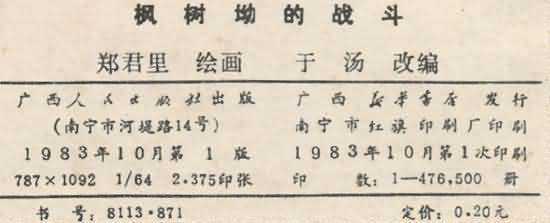 枫树坳的战斗
郑君里 绘画 于汤 改编
广西人民出版社出版 广西新华书店发行
(南宁市河堤路14号) 南宁市红旗印刷厂印刷
1983年10月第1版 1983年10月第1次印刷
787×1092 1/64 2.375印张 印数:1—476,500册
书号:8113·871 定价:0.20元